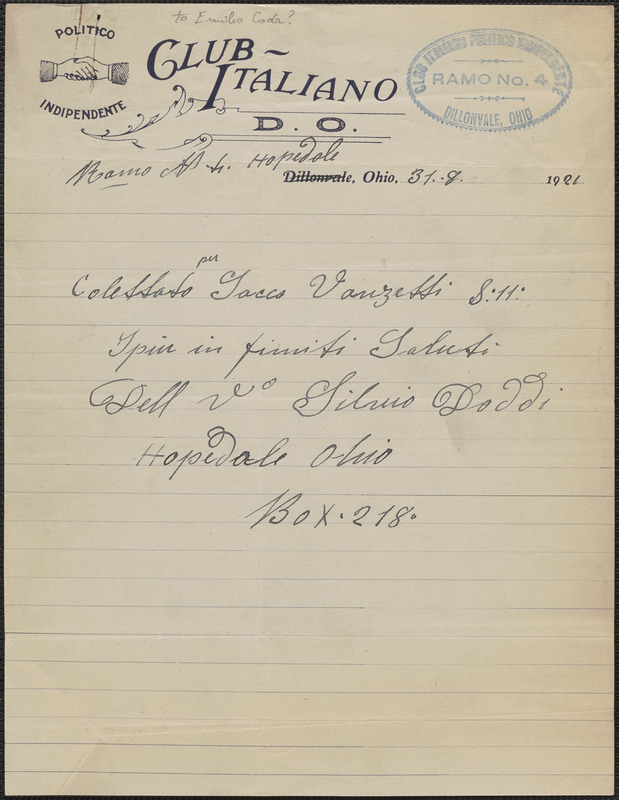 to Emilio Coda?
POLITICO
INDIPENDENTE
CLUB-
ITALIANO
D. O.
CLUB ITALIANO POLITICO INDIPENDENTE
RAMO No. 4
DILLONVALE, OHIO
Ramo No. 4. Hopedale
Dillonvale, Ohio, 31.-8. 1921
per
Colettato Sacco Vanzetti 8:11:
I piu in finiti Saluti
Dell Vo Silvio Doddi
Hopedale Ohio
Box. 218.